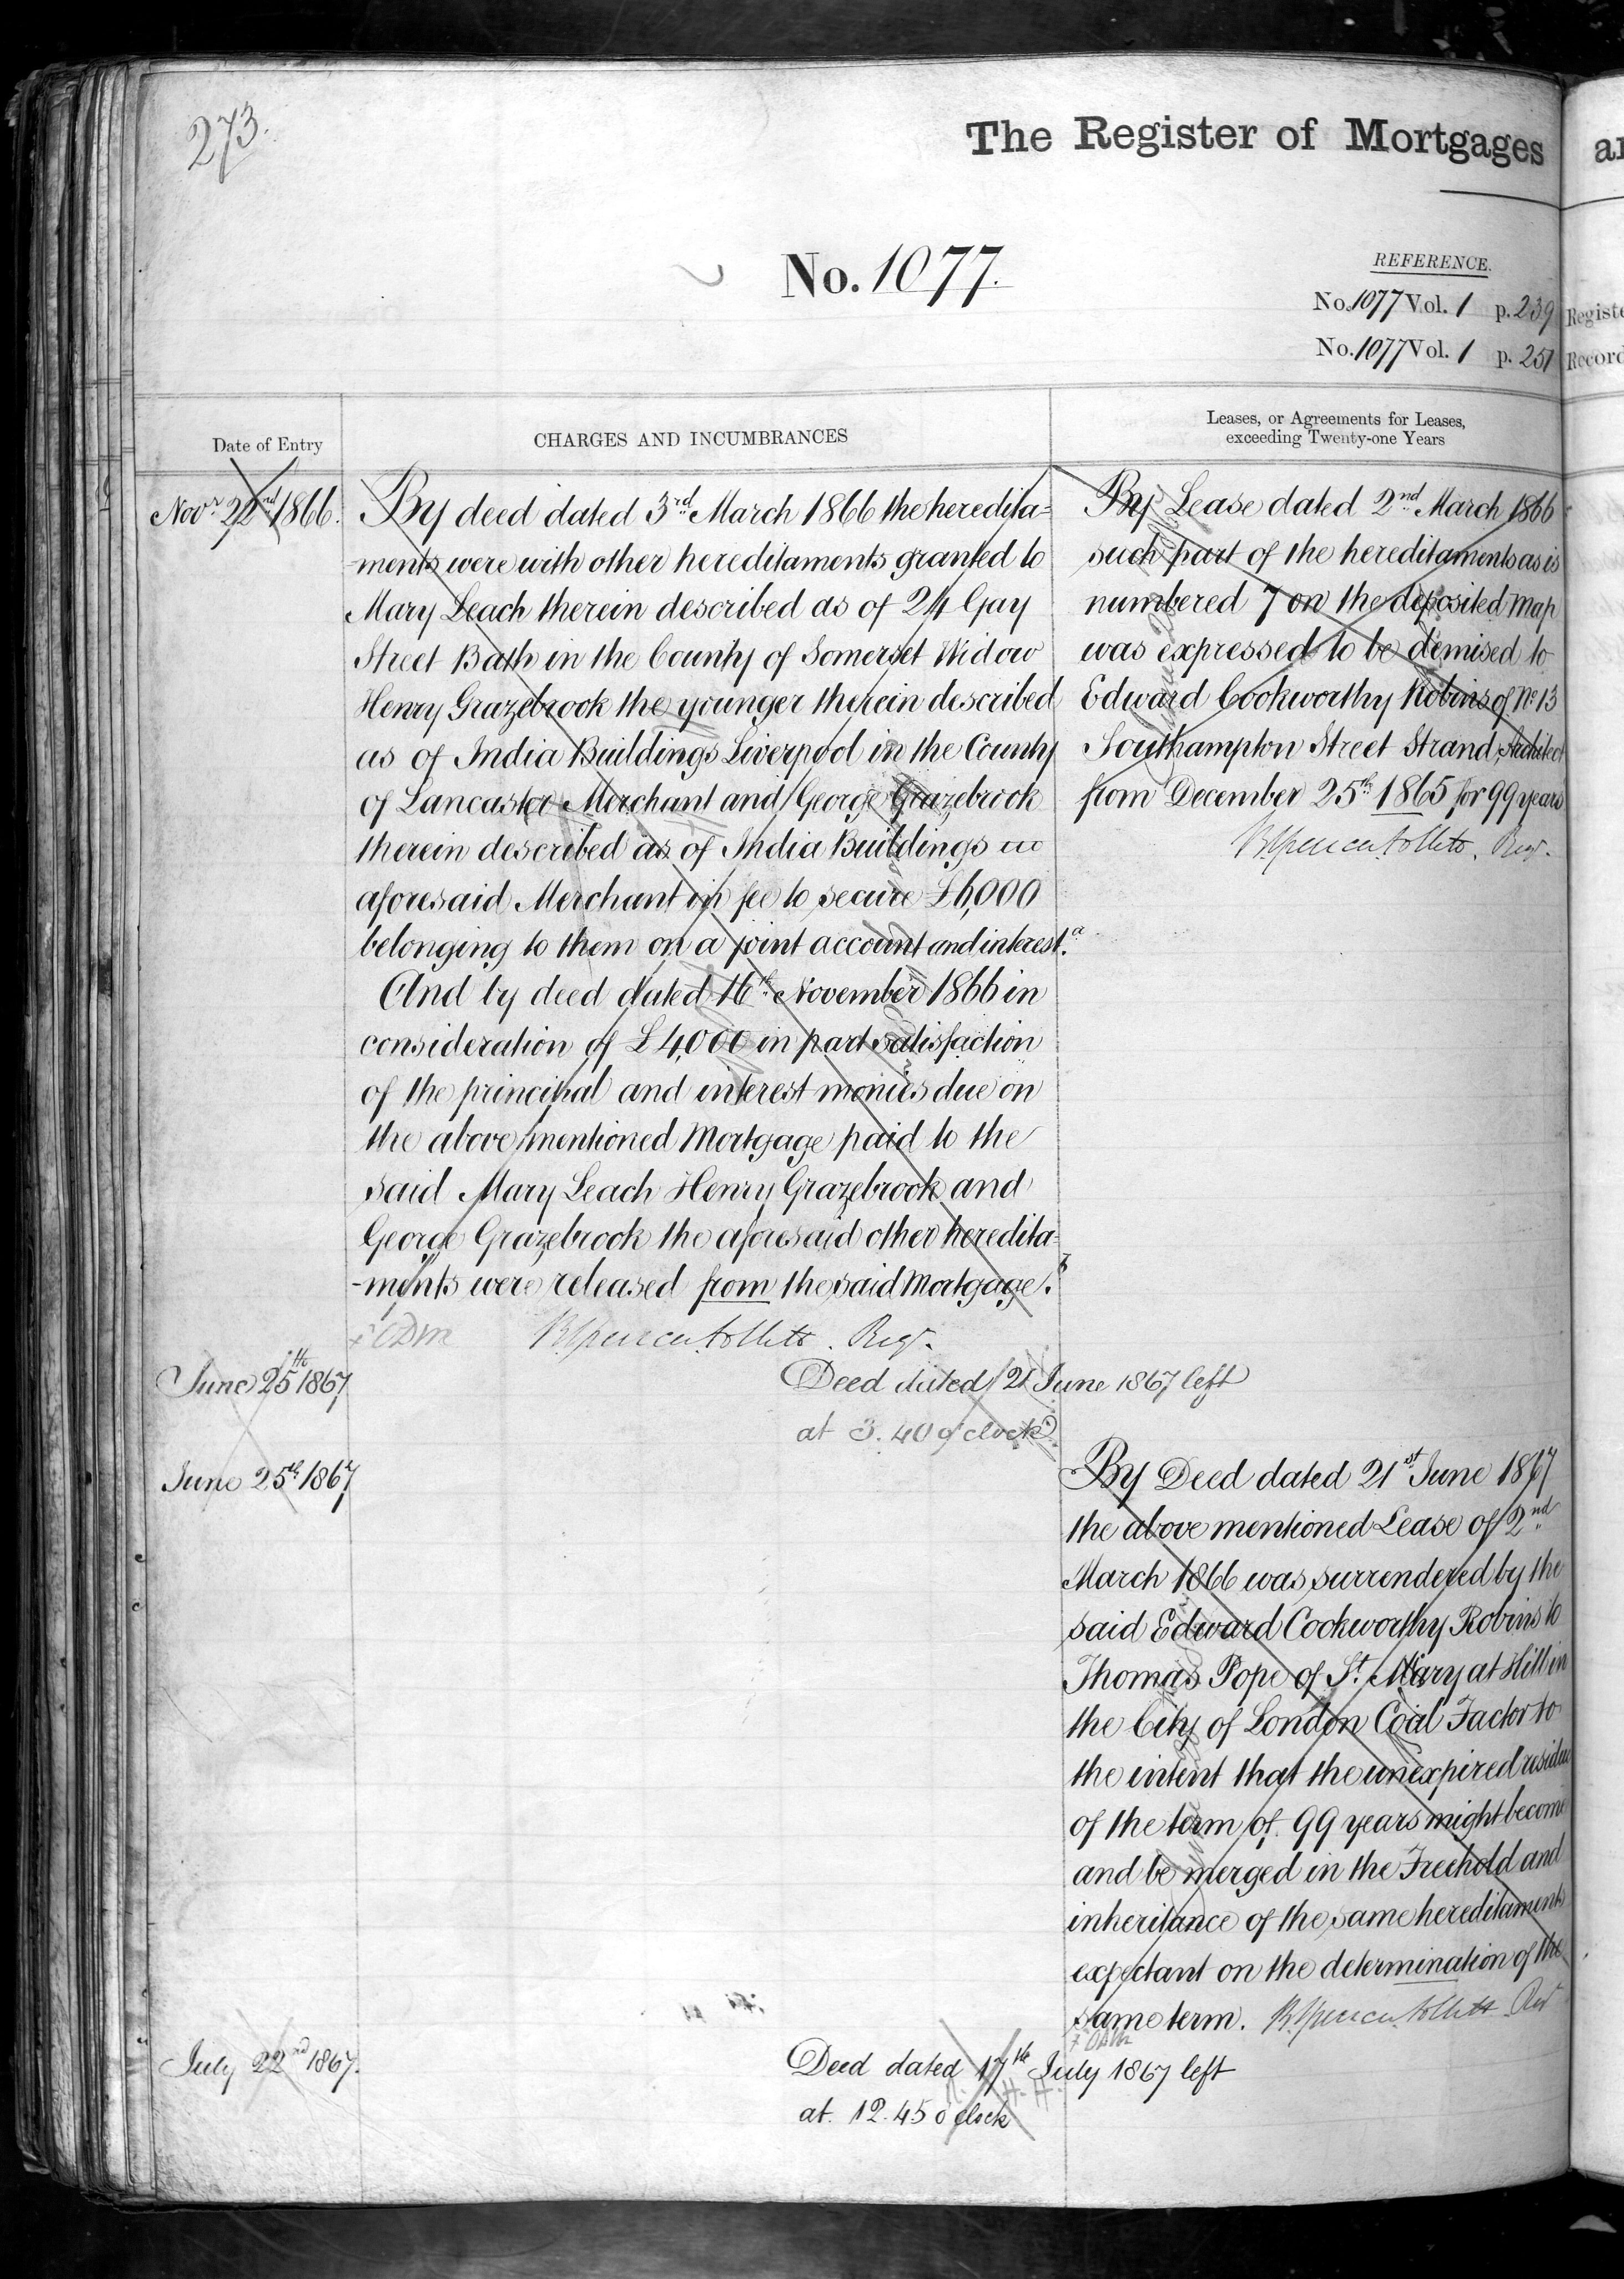 273.
The Register of Mortgages
No. 1077.
REFERENCE.
No. 1077 Vol. 1 p. 239
No. 1077 Vol. 1 p. 251
Registe
Record
Date of Entry
CHARGES AND INCUMBRANCES
Leases, or Agreements for Leases,
exceeding Twenty-one Years
Novr. 22nd 1866.
By deed dated 3rd March 1866 the heredita=
-ments were with other hereditaments granted to
Mary Leach therein described as of 24 Gay
Street Bath in the County of Somerset Widow
Henry Grazebrook the younger therein described
as of India Buildings Liverpool in the County
of Lancaster Merchant and George Grazebrook
therein described as of India Buildings
aforesaid Merchant in fee to secure £6,000
belonging to them on a joint account and interest.a
And by deed dated 16th November 1866 in
consideration of £4,000 in part satisfaction
of the principal and interest monies due on
the above mentioned Mortgage paid to the
said Mary Leach Henry Grazebrook and
George Grazebrook the aforesaid other heredita=
-ments were released from the said Mortgage.
Regr.
By Lease dated 2nd March 1866
such part of the hereditaments as is
numbered 7 on the deposited Map
was expressed to be demised to
Edward Cookworthy Robins of No. 13
Southampton Street Strand, Architect
from December 25th 1865 for 99 years
Regr.
June 25th 1867
Deed dated 21 June 1867 left
at 3.40 o'clock
June 25th 1867
By Deed dated 21st June 1867
the above mentioned Lease of 2nd
March 1866 was surrendered by the
said Edward Cookworthy Robins to
Thomas Pope of St. Mary at Hill in
the City of London Coal Factor to
the intent that the unexpired residue
of the term of 99 years might become
and be merged in the Freehold and
inheritance of the same hereditaments
expectant on the determination of the
same term.
July 22nd 1867.
Deed dated 17th July 1867 left
at 12.45 o'clock